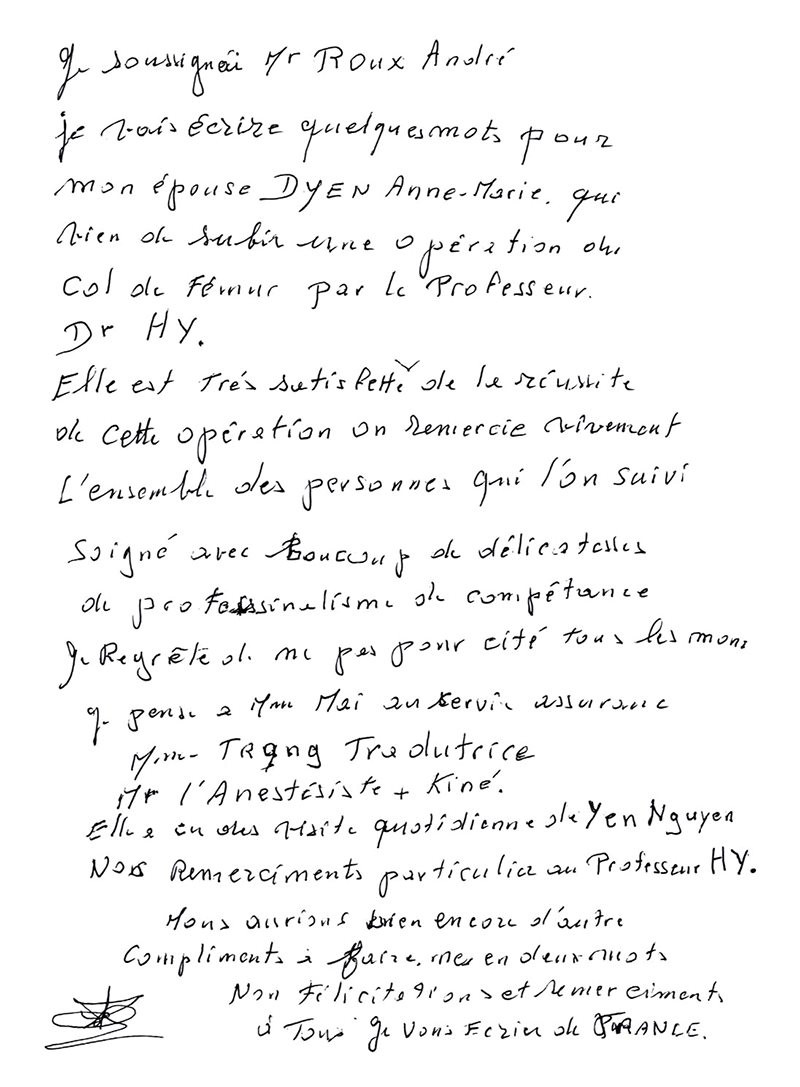 Je soussignéi Mr ROUX André
je vais écrire quelques mots pour
mon épouse DYEN Anne-Marie. qui
vien de subir une opération du
Col de Fémur par le Professeur.
Dr HY.
Elle est trés satisfette de la réussite
de cette opération on remercie vivement
L'ensemble des personnes qui l'on suivi
Soigné avec Boucoup de délicatesses
de professinalisme de compétance
Je Regrète de ne pas pour cité tous les noms
Je pense a Mme Mai au servic assurance
Mme TRANG Tradutrice
Mr l'Anestésiste + Kiné.
Elle a eu des visite quotidienne de Yen Nguyen
Nos Remerciments particulier au Professeur HY.
Nous aurions bien encore d'autre
Compliments à faire. mes en deux mots
Non Félicitations et remerciments
à Tous Je vous Ecrier de FRANCE.